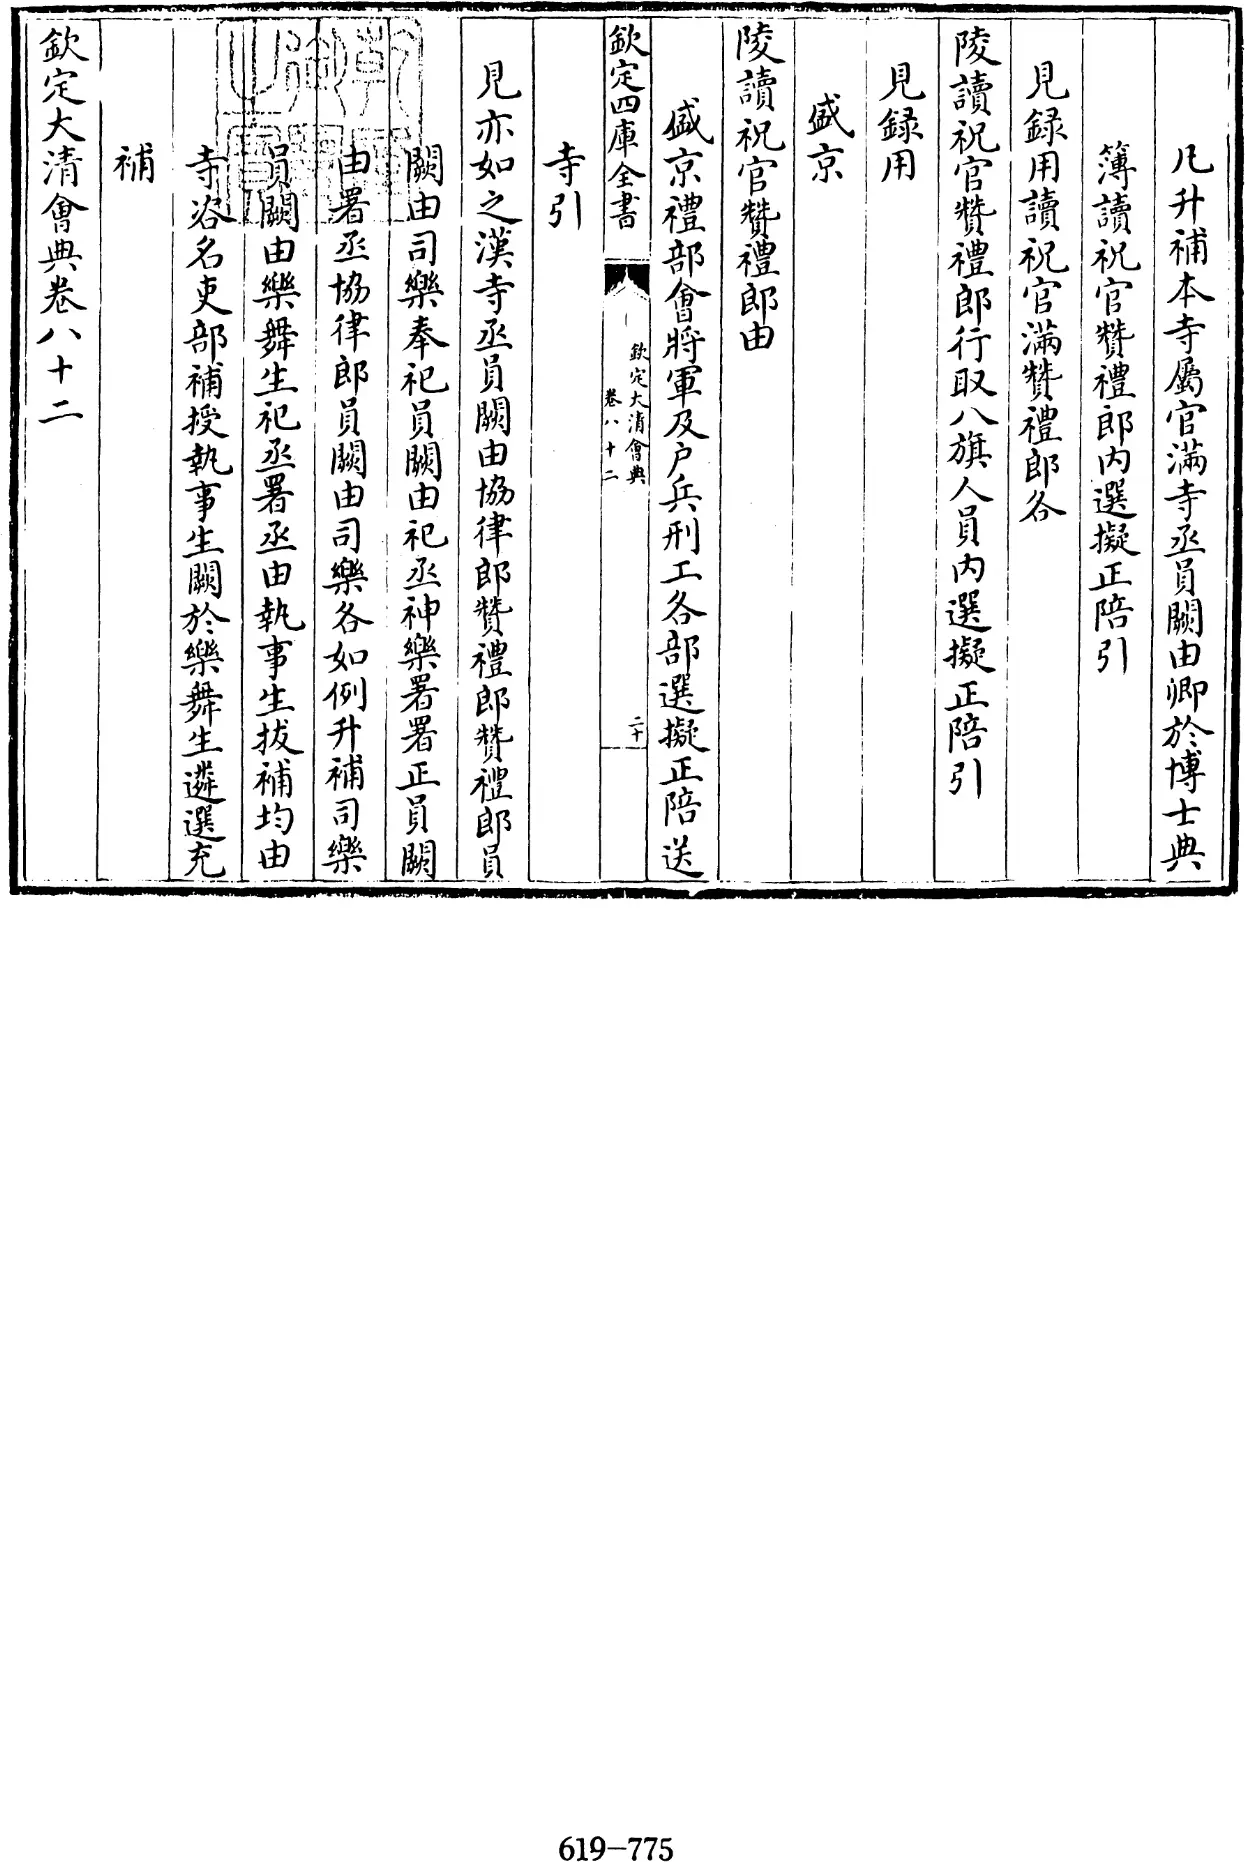 凡升補本寺屬官滿寺丞員闕由卿於博士典
簿讀祝官贊禮郎内選擬正陪引
見録用讀祝官滿贊禮郎各
陵讀祝官贊禮郎行取八旗人員内選擬正陪引
見録用
盛京
陵讀祝官贊禮郎由
盛京禮部會將軍及户兵刑工各部選擬正陪送
欽定四庫全書
欽定大清會典
卷八十二
二十
寺引
見亦如之漢寺丞員闕由協律郎贊禮郎贊禮郎員
闕由司樂奉祀員闕由祀丞神樂署署正員闕
由署丞協律郎員闕由司樂各如例升補司樂
員闕由樂舞生祀丞署丞由執事生拔補均由
寺咨名吏部補授執事生闕於樂舞生遴選充
補
欽定大清會典卷八十二
619-775